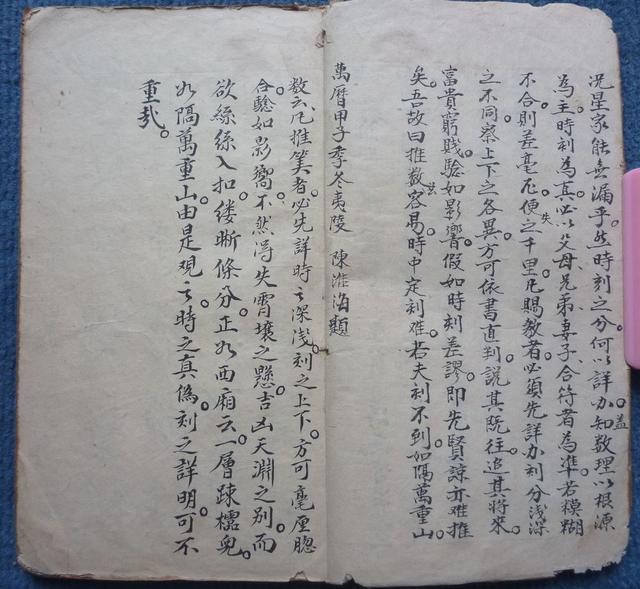 况星家能無漏乎。然時刻之分。何以詳加知數理以根源
蓋
為主。時刻為真。必以父母兄弟妻子。合符者為準。若模糊
不合。則差毫厘。便之千里。凡賜教者。必須先詳加刻分淺深
失
之不同。察上下之各異。方可依書直到。説其既往。追其將來。
富貴窮賤。驗如影響。假如時刻差謬。即先賢諒亦难推
矣。吾故曰推数容易。時中定刻难。若夫刻不到。如隔萬重山
萬曆甲子季冬夷陵 陳淮海題
数云。凡推筭者。必先詳時之深浅。刻之上下。方可毫厘腮
合。驗如影嚮。不然。得失霄壤之懸。吉凶天淵之别。而
欲絲絲入扣。缕晰條分。正如西廂云。一層踈櫺兒。
如隔萬重山。由是观之。時之真偽。刻之詳明。可不
重哉。